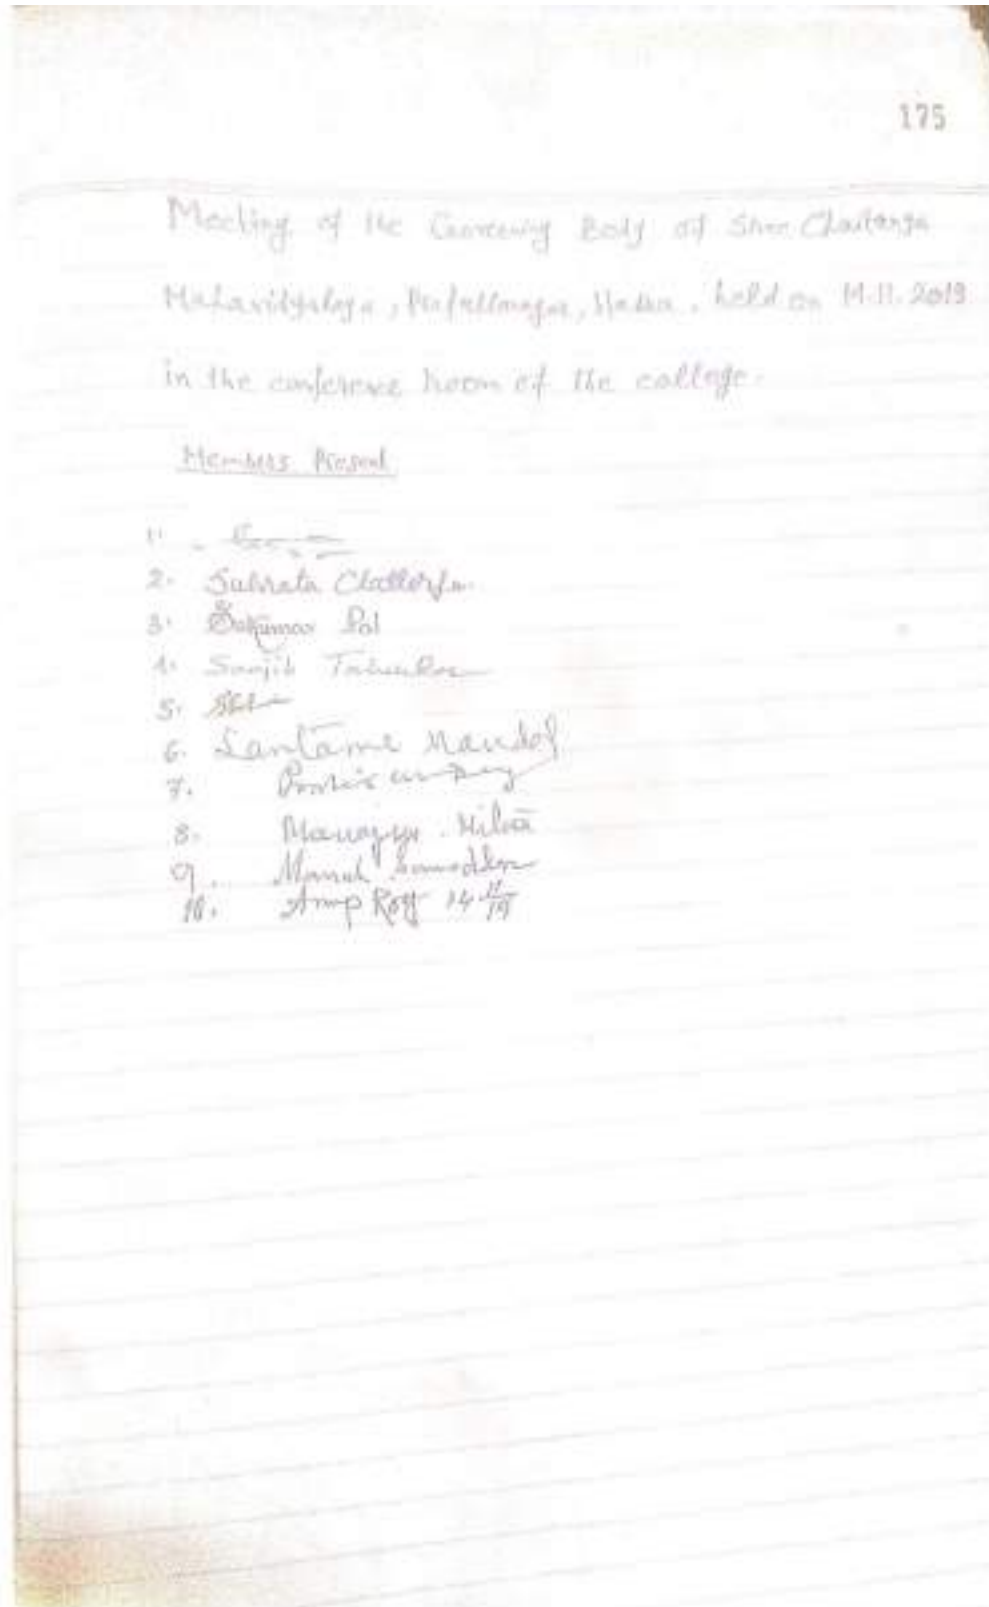 175
Meeting of the Governing Body of Shree Chaitanya
Mahavidyalaya, Prafullanagar, Habra, held on 14.11.2019
in the conference Room of the college.
Members Present
1.
2. Subrata Chatterjee
3. Sukumar Pal
4. Sanjib Talukdar
5.
6. Mandal
7.
8. Mitra
9.
10. Anup Roy 14 11/19